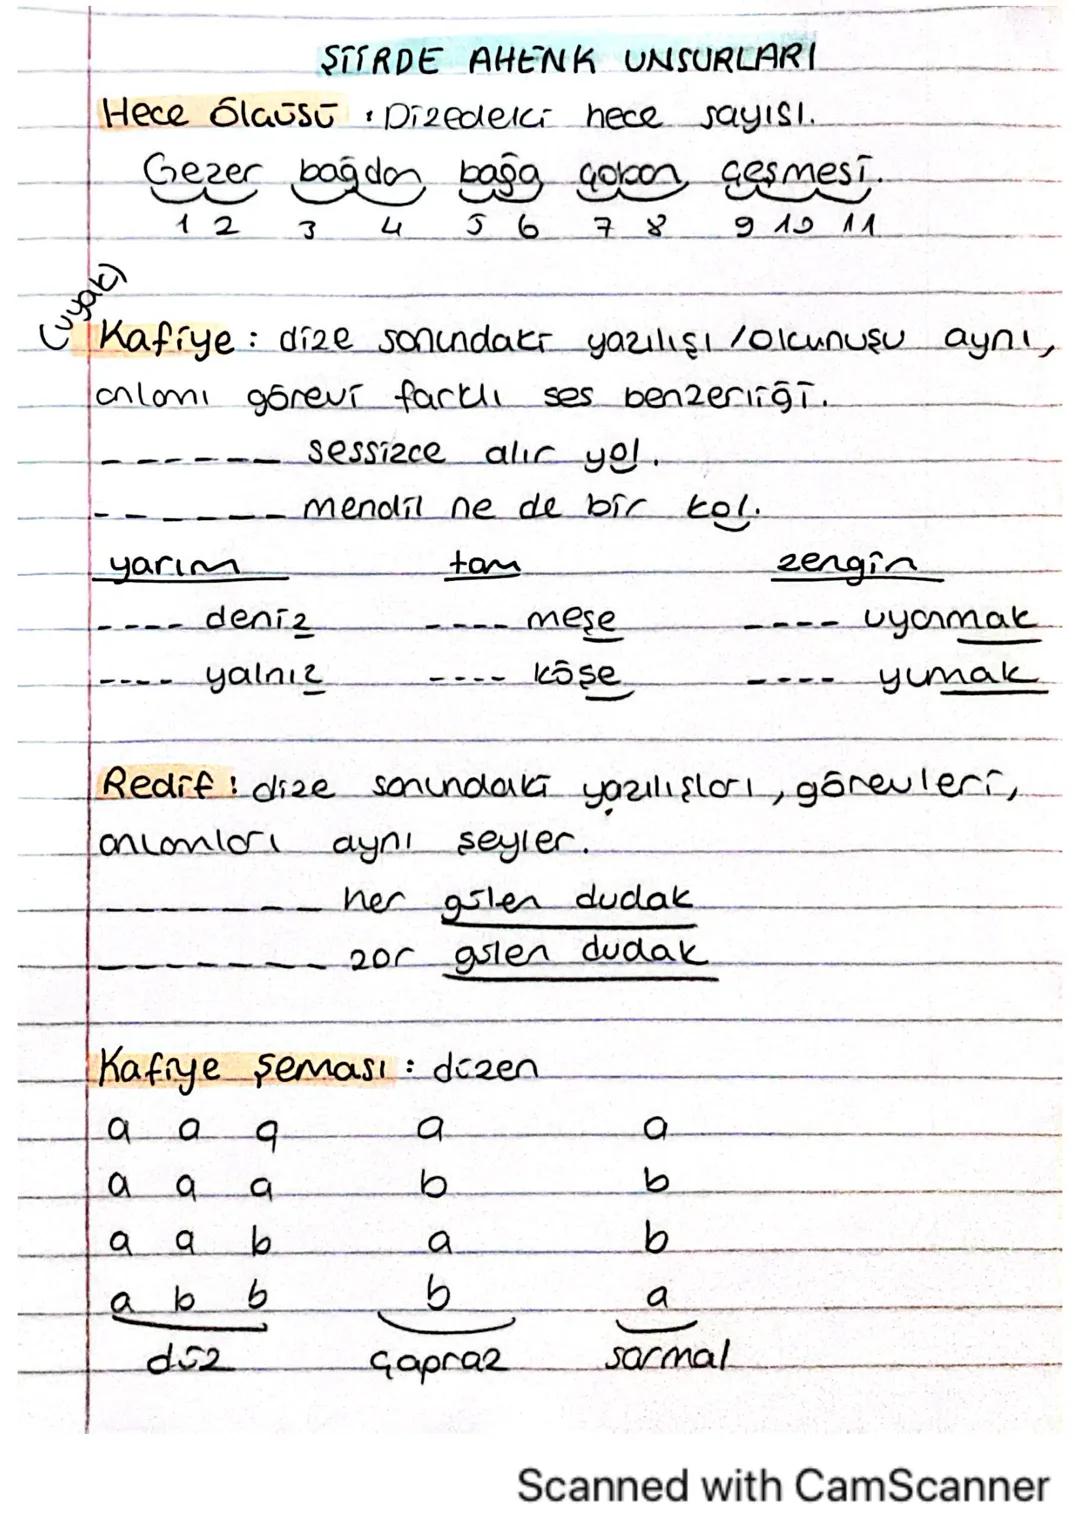 ŞİİRDE AHENK UNSURLARI
Hece Ölçüsü : Dizedeki hece sayısı.
Gezer bağdan bağa çoban çeşmesi.
1 2 3 4 5 6 7 8 9 10 11
(uyak)
Kafiye : dize sonundaki yazılışı / okunuşu aynı,
anlamı görevi farklı ses benzerliği.
------ sessizce alır yol.
------ mendil ne de bir kol.
yarım tam zengin
---- deniz ---- meşe ---- uyanmak
---- yalnız ---- köşe ---- yumak
Redif : dize sonundaki yazılışları, görevleri,
anlamları aynı şeyler.
------- her gülen dudak
------- zor gülen dudak
Kafiye şeması : düzen
a a a a a
a a a b b
a a b a b
a b b b a
düz çapraz sarmal
Scanned with CamScanner